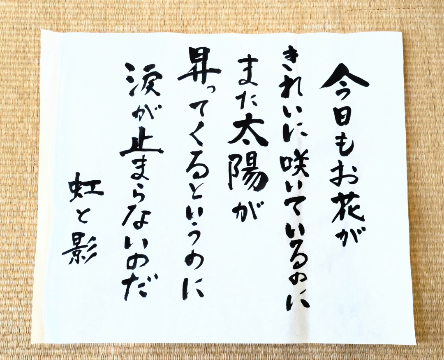 今日もお花が
きれいに咲いているのに
また太陽が
昇ってくるというのに
涙が止まらないのだ
虹と影